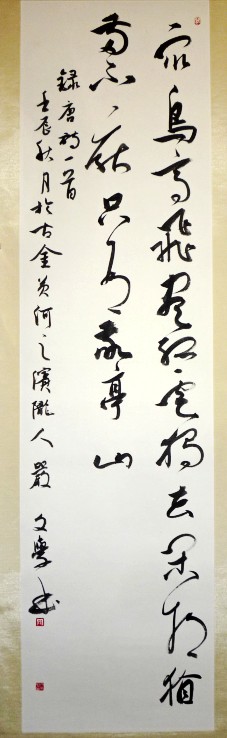 众鳥高飛盡孤雲獨去閑相看
兩不厭只有敬亭山
録唐詩一首
壬辰秋月於古金黄河之濱隴人嚴文學書